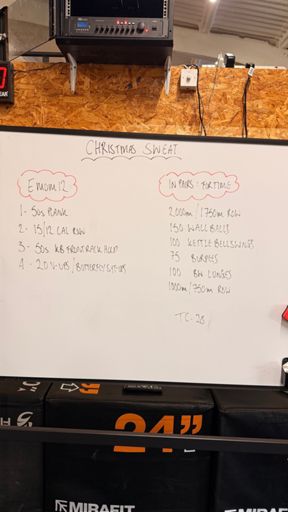 CHRISTMAS SWEAT
EMOM 12
1 - 50s PLANK
2 - 15/12 CAL ROW
3 - 50s KB FRONT RACK HOLD
4 - 20 V-UPS / BUTTERFLY SIT UPS
IN PAIRS: FOR TIME
2000m / 1750m ROW
150 WALL BALLS
100 KETTLE BELL SWINGS
75 BURPEES
100 BW LUNGES
1000m / 750m ROW
TC - 28
24"
MIRAFIT
MIRAFIT